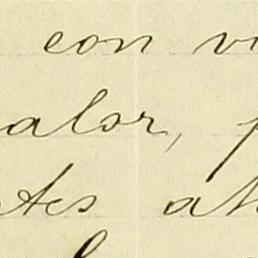 con vi
alor, p
tes at